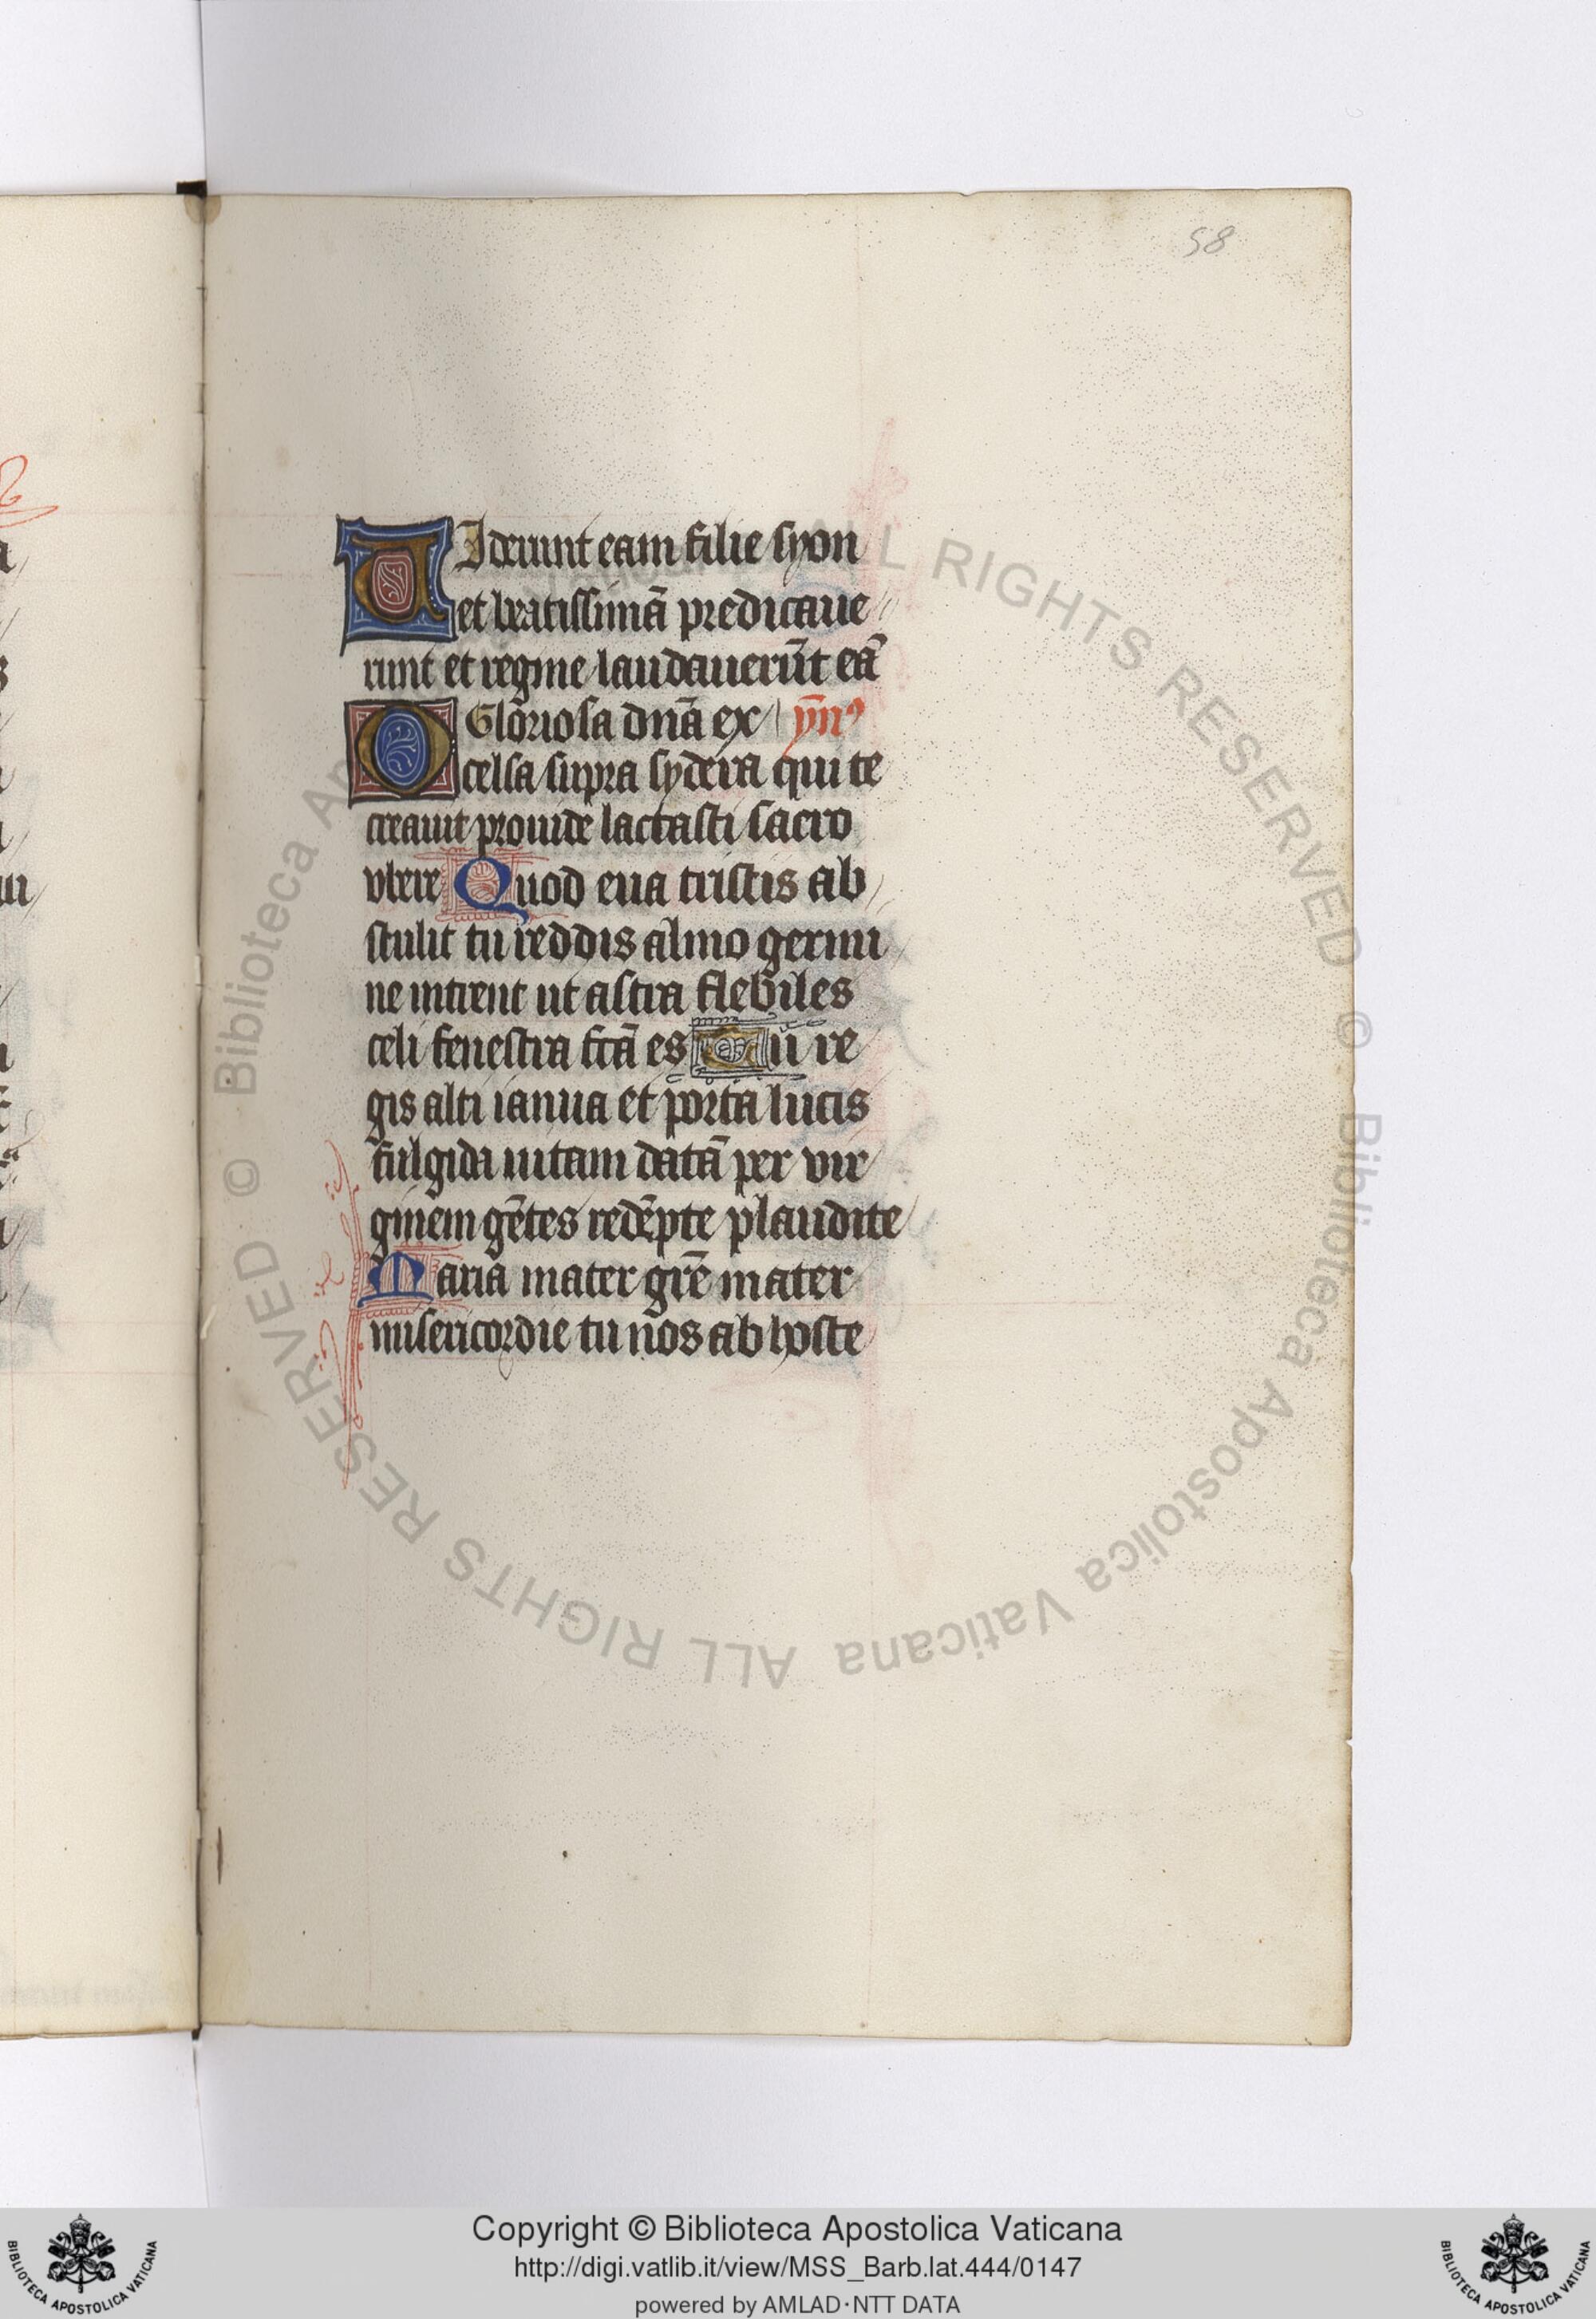 58
VIderunt eam filie syon
et beatissimā predicaue
runt et regine laudauerūt eā
O Gloriosa dnā ex yn̄ꝰ
celsa supra sydera qui te
creauit prouide lactasti sacro
vbere Quod eua tristis ab
stulit tu reddis almo germi
ne intrent ut astra flebiles
celi fenestra fcā es Tu re
gis alti ianua et porta lucis
fulgida uitam datā per vir
ginem gētes redēpte plaudite
Maria mater grē mater
misericordie tu nos ab hoste
Copyright © Biblioteca Apostolica Vaticana
http://digi.vatlib.it/view/MSS_Barb.lat.444/0147
powered by AMLAD·NTT DATA
BIBLIOTECA APOSTOLICA VATICANA
BIBLIOTECA APOSTOLICA VATICANA
© Biblioteca Apostolica Vaticana ALL RIGHTS RESERVED © Biblioteca Apostolica Vaticana ALL RIGHTS RESERVED